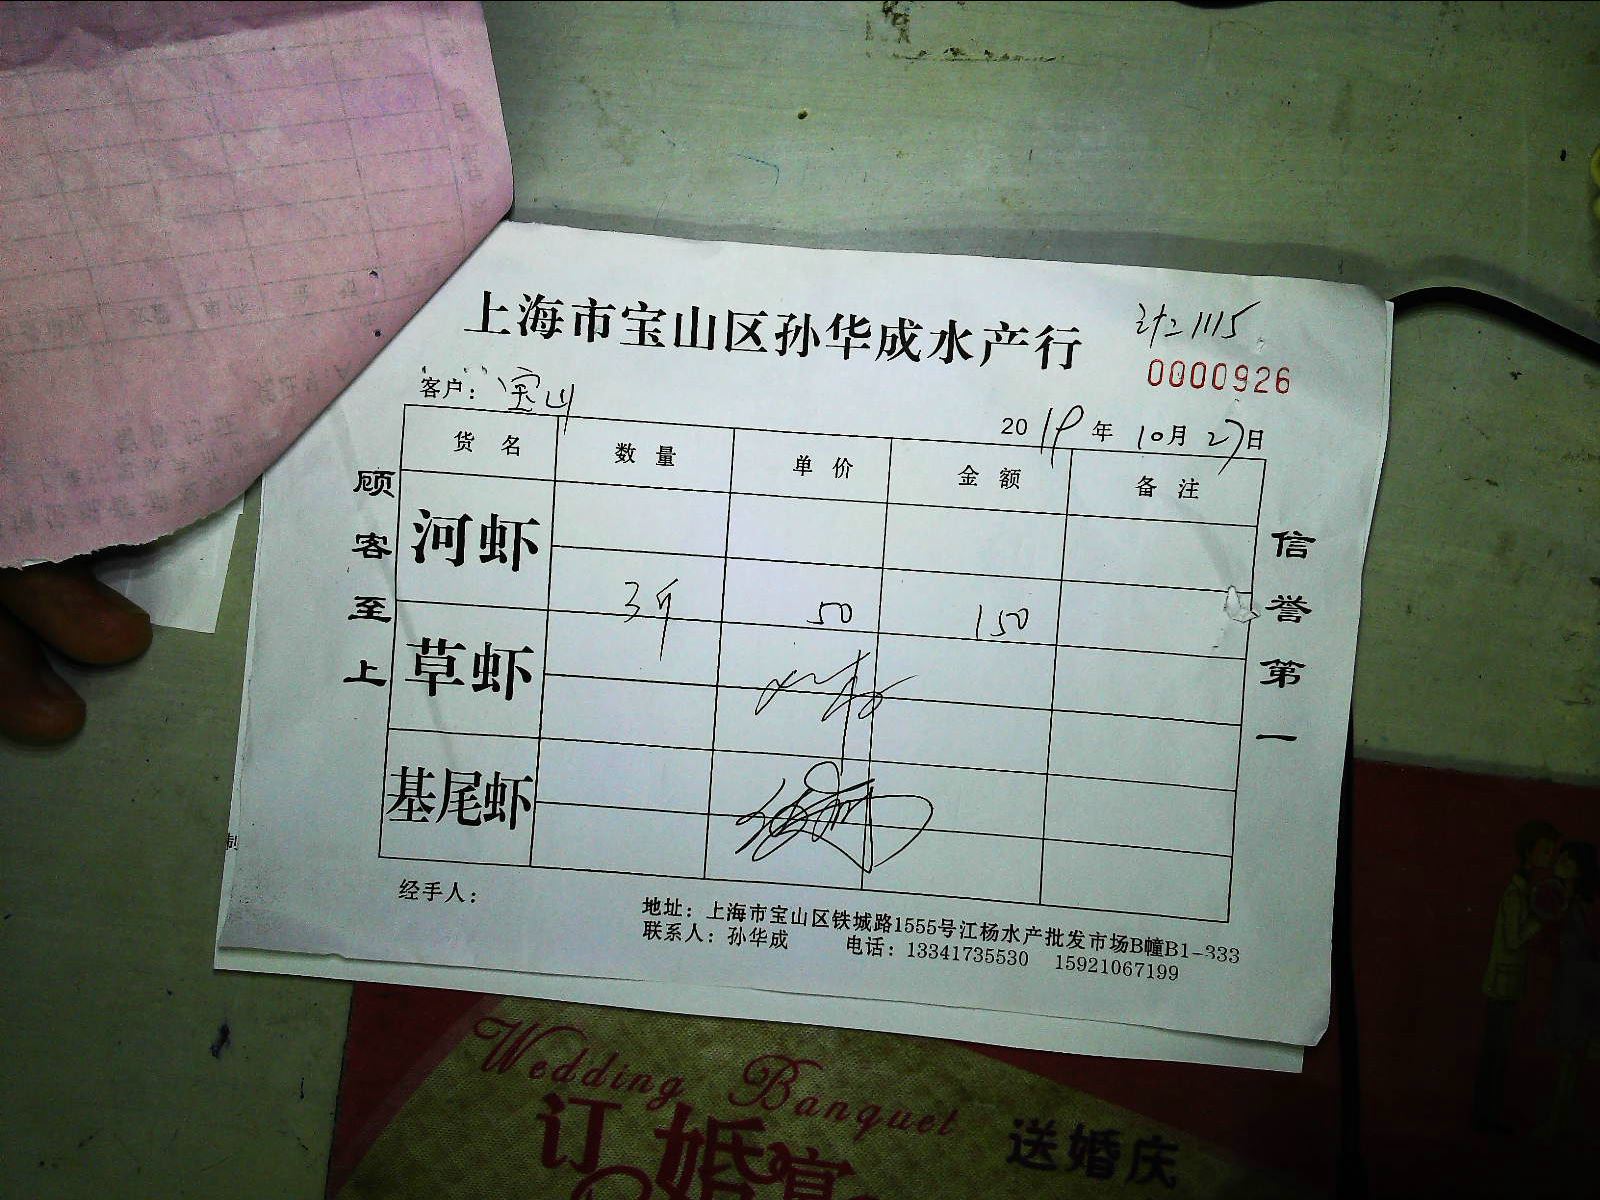 上海市宝山区孙华成水产行
0000926
客户：宝山
2019年10月27日
货名 数量 单价 金额 备注
河虾
草虾 3斤 50 150
基尾虾
顾客至上
信誉第一
经手人：
地址：上海市宝山区铁城路1555号江杨水产批发市场B幢B1-333
联系人：孙华成 电话：13341735530 15921067199
制
Wedding Banquet
订婚宴
送婚庆